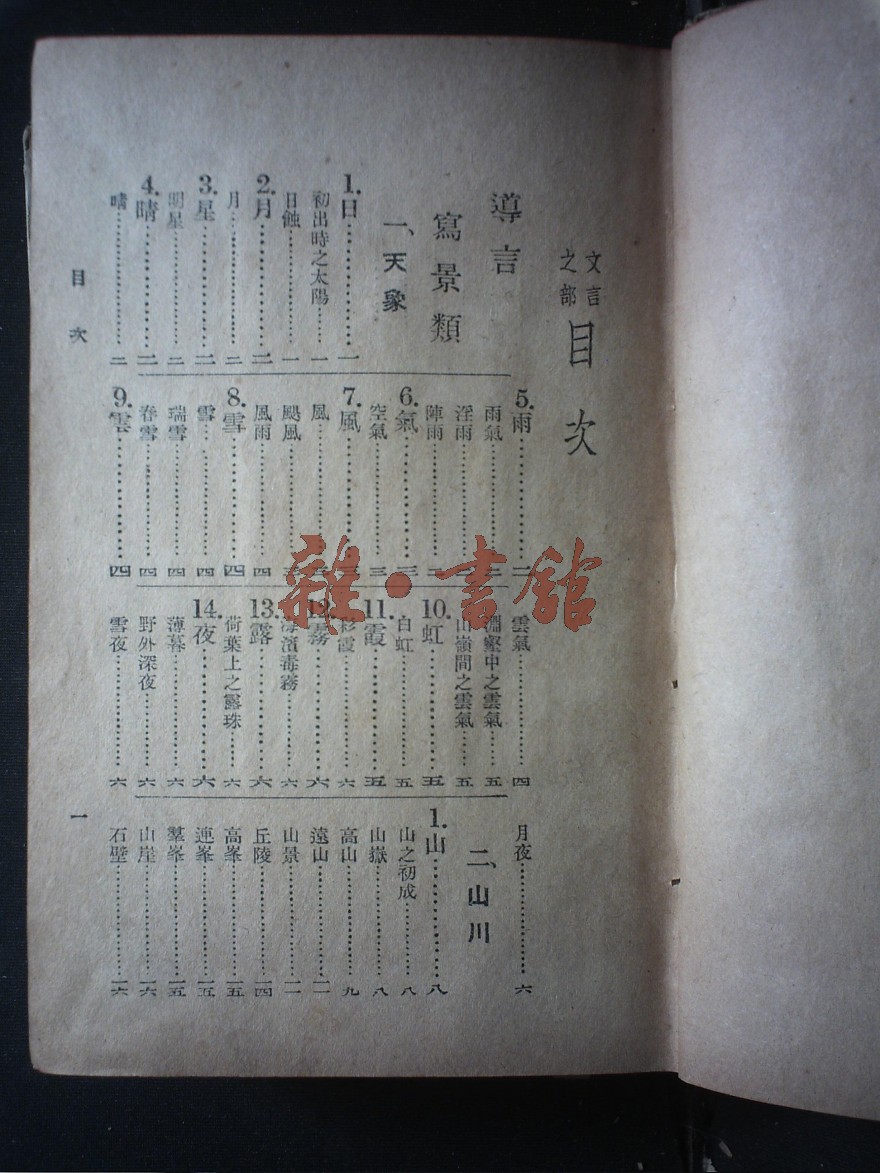 文言
之部
目次
導言
寫景類
一、天象
1.日……………一
初出時之太陽……一
日蝕……………一
2.月……………二
月……………二
3.星……………二
明星……………二
4.晴……………二
晴……………二
5.雨……………二
雨氣……………
淫雨……………
陣雨……………二
6.氣……………三
空氣……………三
7.風……………三
風……………
颶風……………
風雨……………四
8.雪……………四
雪……………四
瑞雪……………四
春雪……………四
9.雲……………四
雲氣……………四
壑中之雲氣……五
山嶺間之雲氣……五
10.虹……………五
白虹……………五
11.霞……………五
彩霞……………六
12.霧……………六
海濱毒霧……………六
13.露……………六
荷葉上之露珠……六
14.夜……………六
薄暮……………六
野外深夜……………六
雪夜……………六
月夜……………六
二、山川
1.山……………八
山之初成……………八
山嶽……………八
高山……………九
遠山……………一一
山景……………一一
丘陵……………一四
高峯……………一五
連峯……………一五
羣峯……………一五
山崖……………一六
石壁……………一六
目次
一
雜·書館